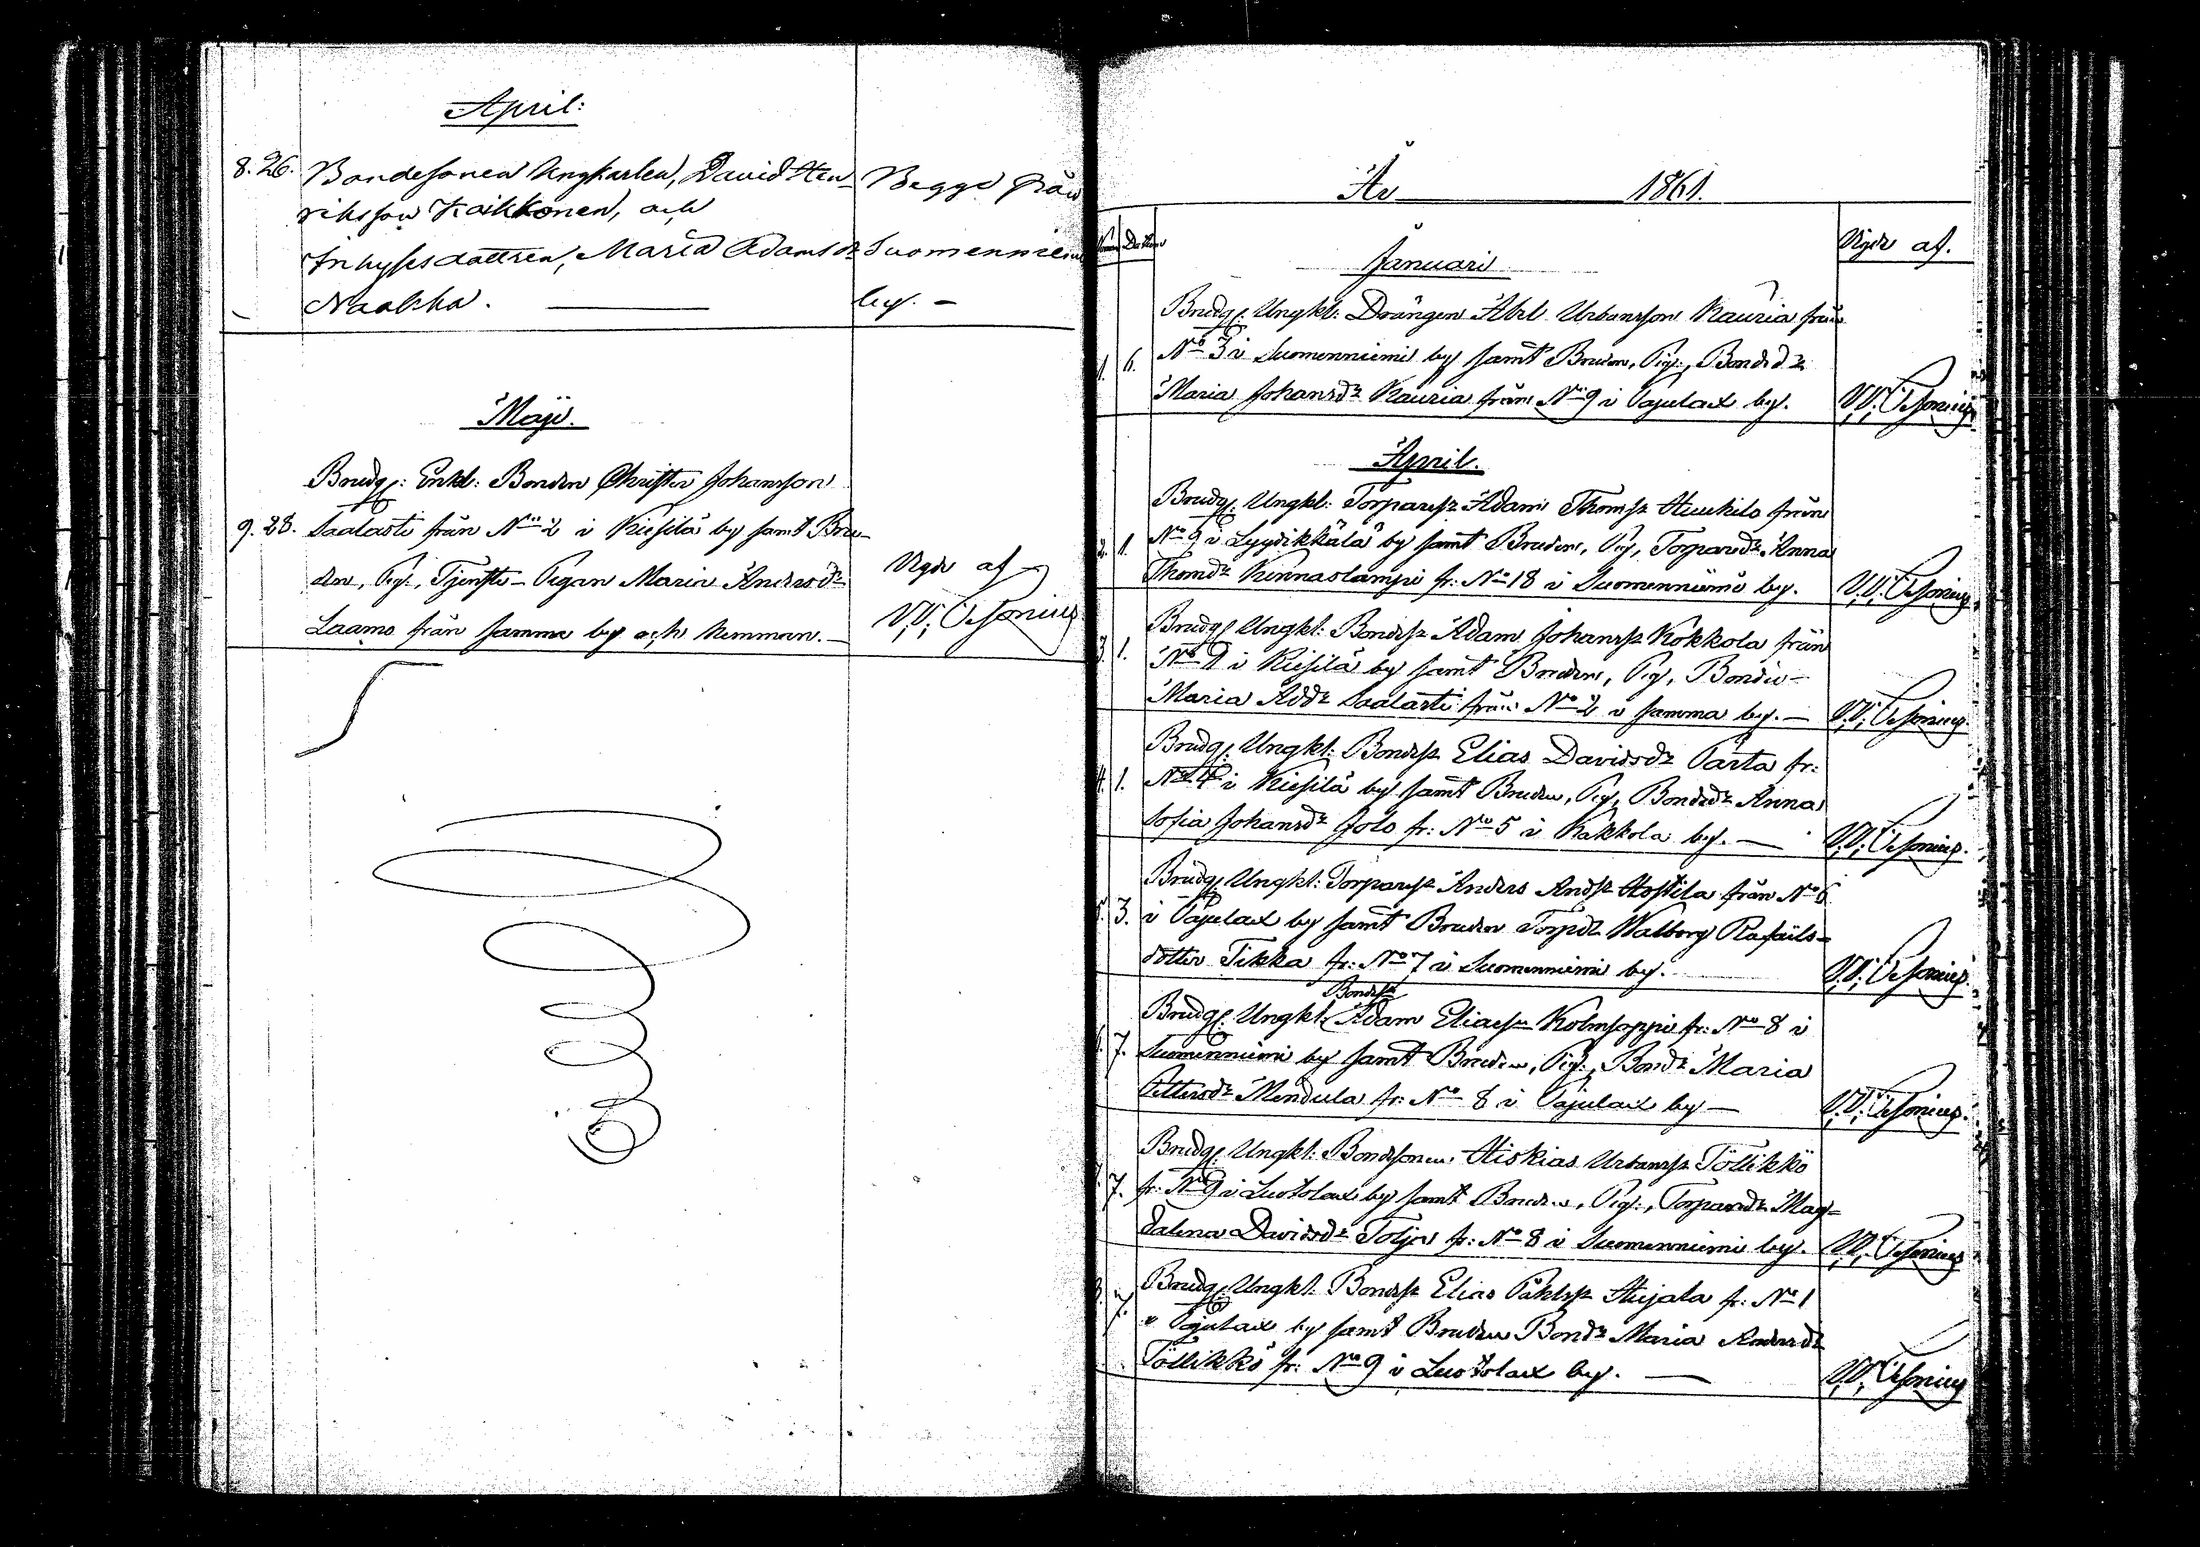 April:
8. 26. Bondesonen Ungkarlen, David Hen- Begge från
riksson Kaikkonen, och
Inhyses dottren, Maria Adamsdr Suomenniemi
Naakka. by. -
Maji.
Brudg: Enkl: Bonden Christer Johansson
9. 28. Saalasti från No 2 i Kiesilä by samt Bru-
den, Pig., Tjenste-Pigan Maria Andersdr
Laamo från samma by och nummer. -
Vgde af
V.V. Cesonius
År 1861.
Vigde af.
Januari
Brudg: Ungkl: Drängen Abel Urbansson Kauria från
1. 6. No 3 i Suomenniemi by samt Bruden, Pig., Bondedr
Maria Johansdr Kauria från No 9 i Pajulax by. V.V. Cesonius
April.
Brudg: Ungkl: Torparesr Adam Thomsr Huukilo från
2. 1. No 9 i Lyydikkälä by samt Bruden, Pig., Torparedr Anna
Thomdr Kinnaslampi fr: No 18 i Suomenniemi by. V.V. Cesonius
Brudg: Ungkl: Bondesr Adam Johansr Kokkola från
3. 1. No 9 i Kiesilä by samt Bruden, Pig., Bonde-
Maria Addr Saalasti från No 2 i samma by. - V.V. Cesonius.
Brudg: Ungkl: Bondesr Elias Davidsdr Parta fr:
4. 1. No 4 i Kiesilä by samt Bruden, Pig. Bondedr Anna
Sofia Johansdr Jolo fr: No 5 i Kakkola by. - V.V. Cesonius.
Brudg: Ungkl: Torparesr Anders Andsr Hostila från No 6
5. 3. i Pajulax by samt Bruden Torpdr Walborg Rafaels-
dotter Tikka fr: No 7 i Suomenniemi by. V.V. Cesonius.
Bondesr
Brudg: Ungkl: Adam Eliaesr Kolmsoppi fr: No 8 i
7. Suomenniemi by samt Bruden, Pig., Bondr Maria
Pettersdr Mendula fr: No 8 i Pajulax by - V.V. Cesonius.
Brudg: Ungkl: Bondsonen Hiskias Urbansr Töllikkö
7. fr: No 9 i Luotolax by samt Bruden, Pig., Torparedr Mag-
dalena Davidsdr Toljo fr: No 8 i Suomenniemi by. V.V. Cesonius
Brudg: Ungkl: Bondesr Elias Påhlsr Hujala fr: No 1
7. i Pajulax by samt Bruden Bondr Maria Andersdr
Töllikkö fr: No 9 i Luotolax by. - V.V. Cesonius